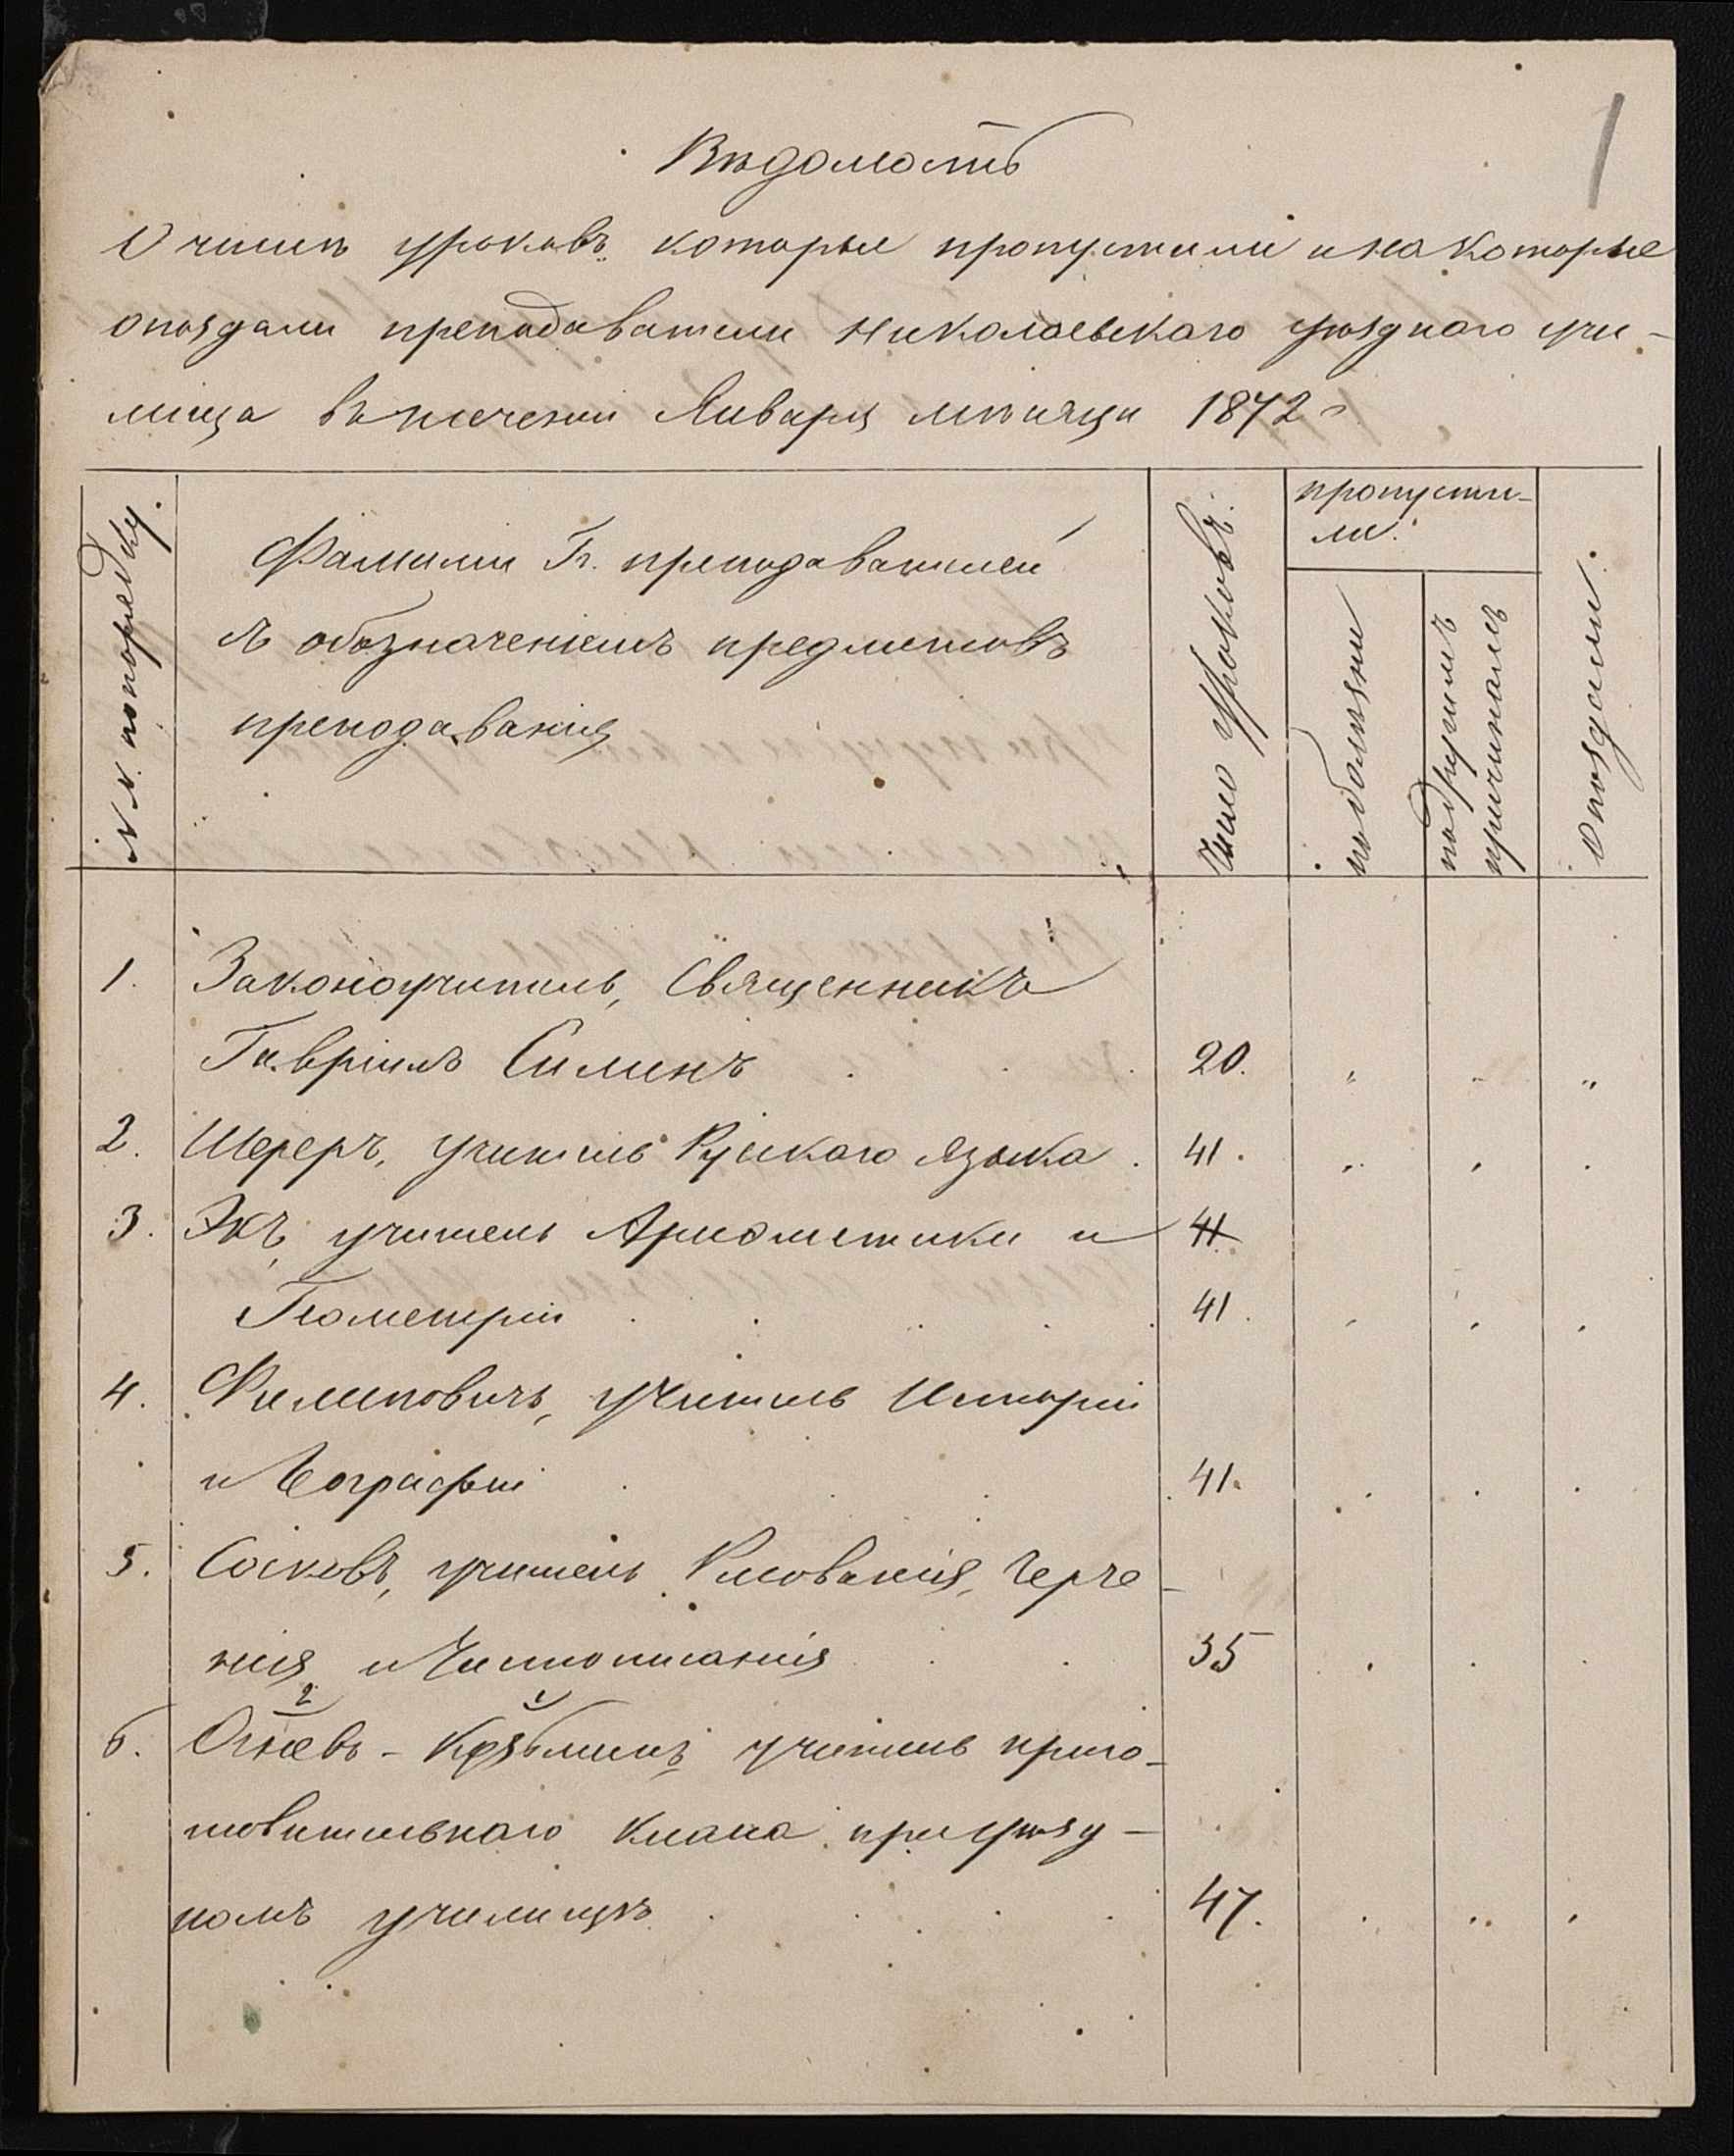 1
Вѣдомость
О числѣ уроковъ, которые пропустили и на которые
опоздали преподаватели Николаевскаго уѣзднаго учи-
лища въ теченіи Января мѣсяца 1872 г.
№№ по порядку.
Фамиліи Гг. преподавателей
съ обозначеніемъ предметовъ
преподаванія
Число уроковъ.
пропусти-
ли.
по болѣзни
по другимъ
причинамъ
Опоздали.
1. Законоучитель, Священникъ
Гавріилъ Силинъ . . . 20. „ „ „
2. Шереръ, учитель Рускаго языка . 41. „ „ „
3. Экъ, учитель Ариѳметики и 41
Геометріи . . . . 41. „ „ „
4. Филиповичъ, учитель Исторіи
и Географіи . . . 41. „ „ „
5. Сосковъ, учитель Рисованія, Черче-
нія и Чистописанія . . 35 „ „ „
6. Огнев - учитель приго-
товительнаго класа при уѣзд-
номъ училищѣ . . . . 47. „ „ „